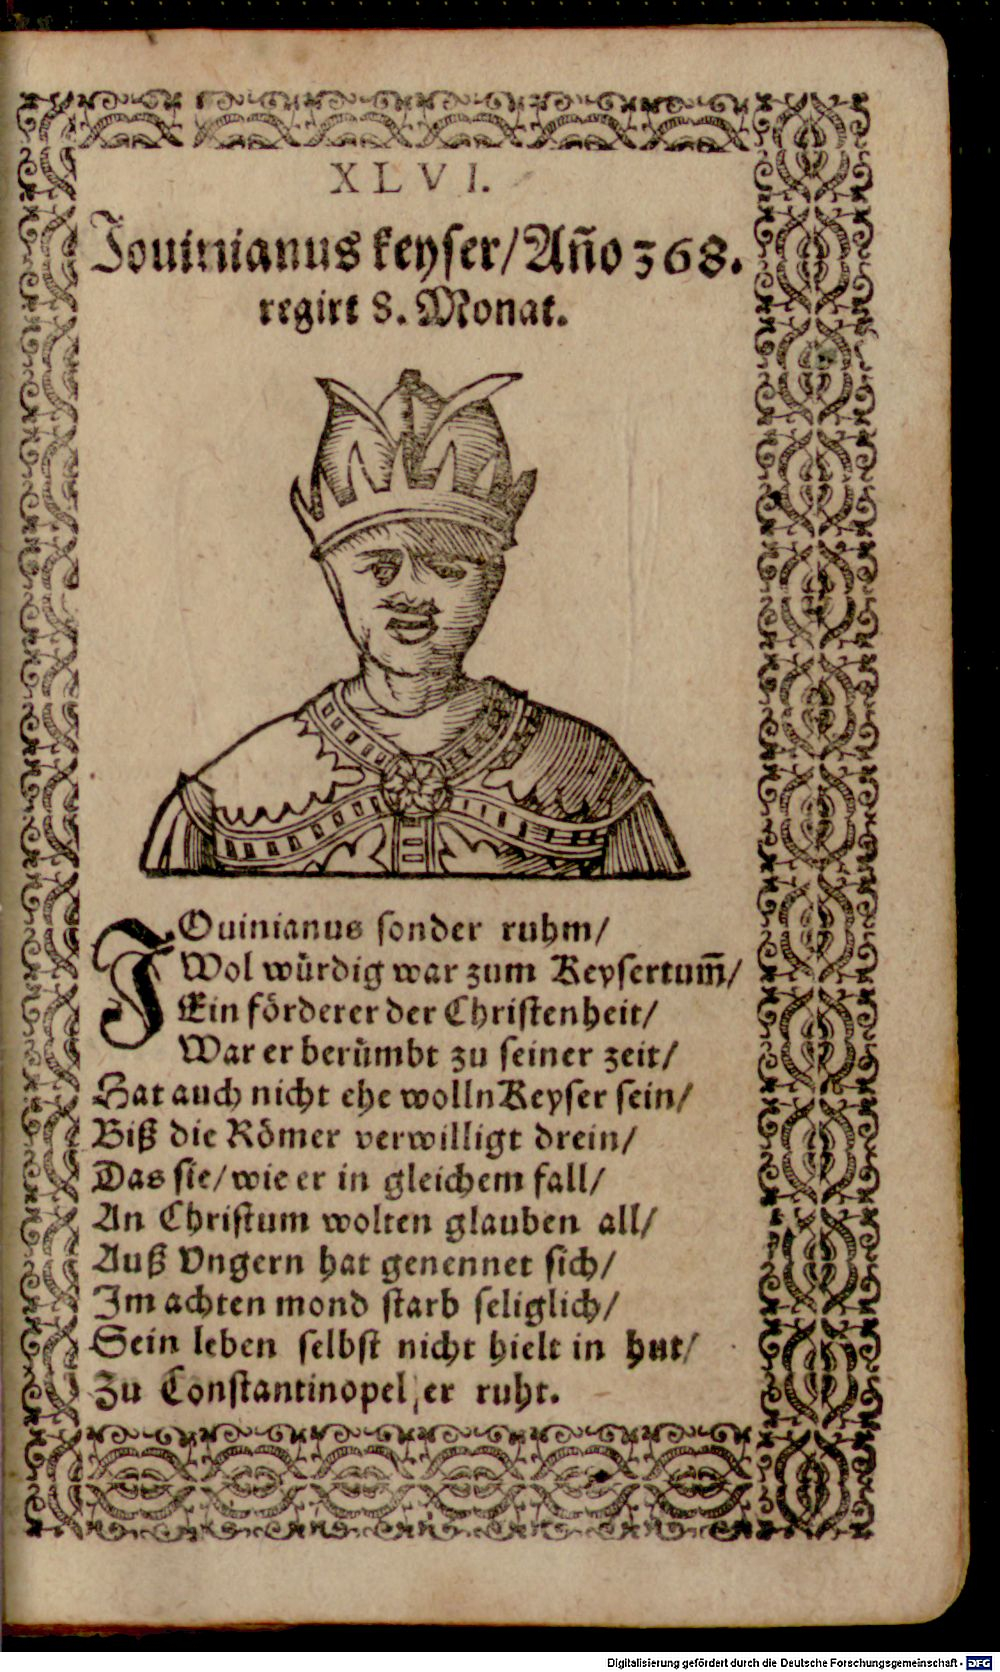 XLVI.
Jouinianus keyser/Año 368.
regirt 8. Monat.
JOuinianus sonder ruhm/
Wol würdig war zum Keysertum̃/
Ein förderer der Christenheit/
War er berümbt zu seiner zeit/
Hat auch nicht ehe wolln Keyser sein/
Biß die Römer verwilligt drein/
Das sie/ wie er in gleichem fall/
An Christum wolten glauben all/
Auß Vngern hat genennet sich/
Im achten mond starb seliglich/
Sein leben selbst nicht hielt in hut/
Zu Constantinopel er ruht.
Digitalisierung gefördert durch die Deutsche Forschungsgemeinschaft - DFG